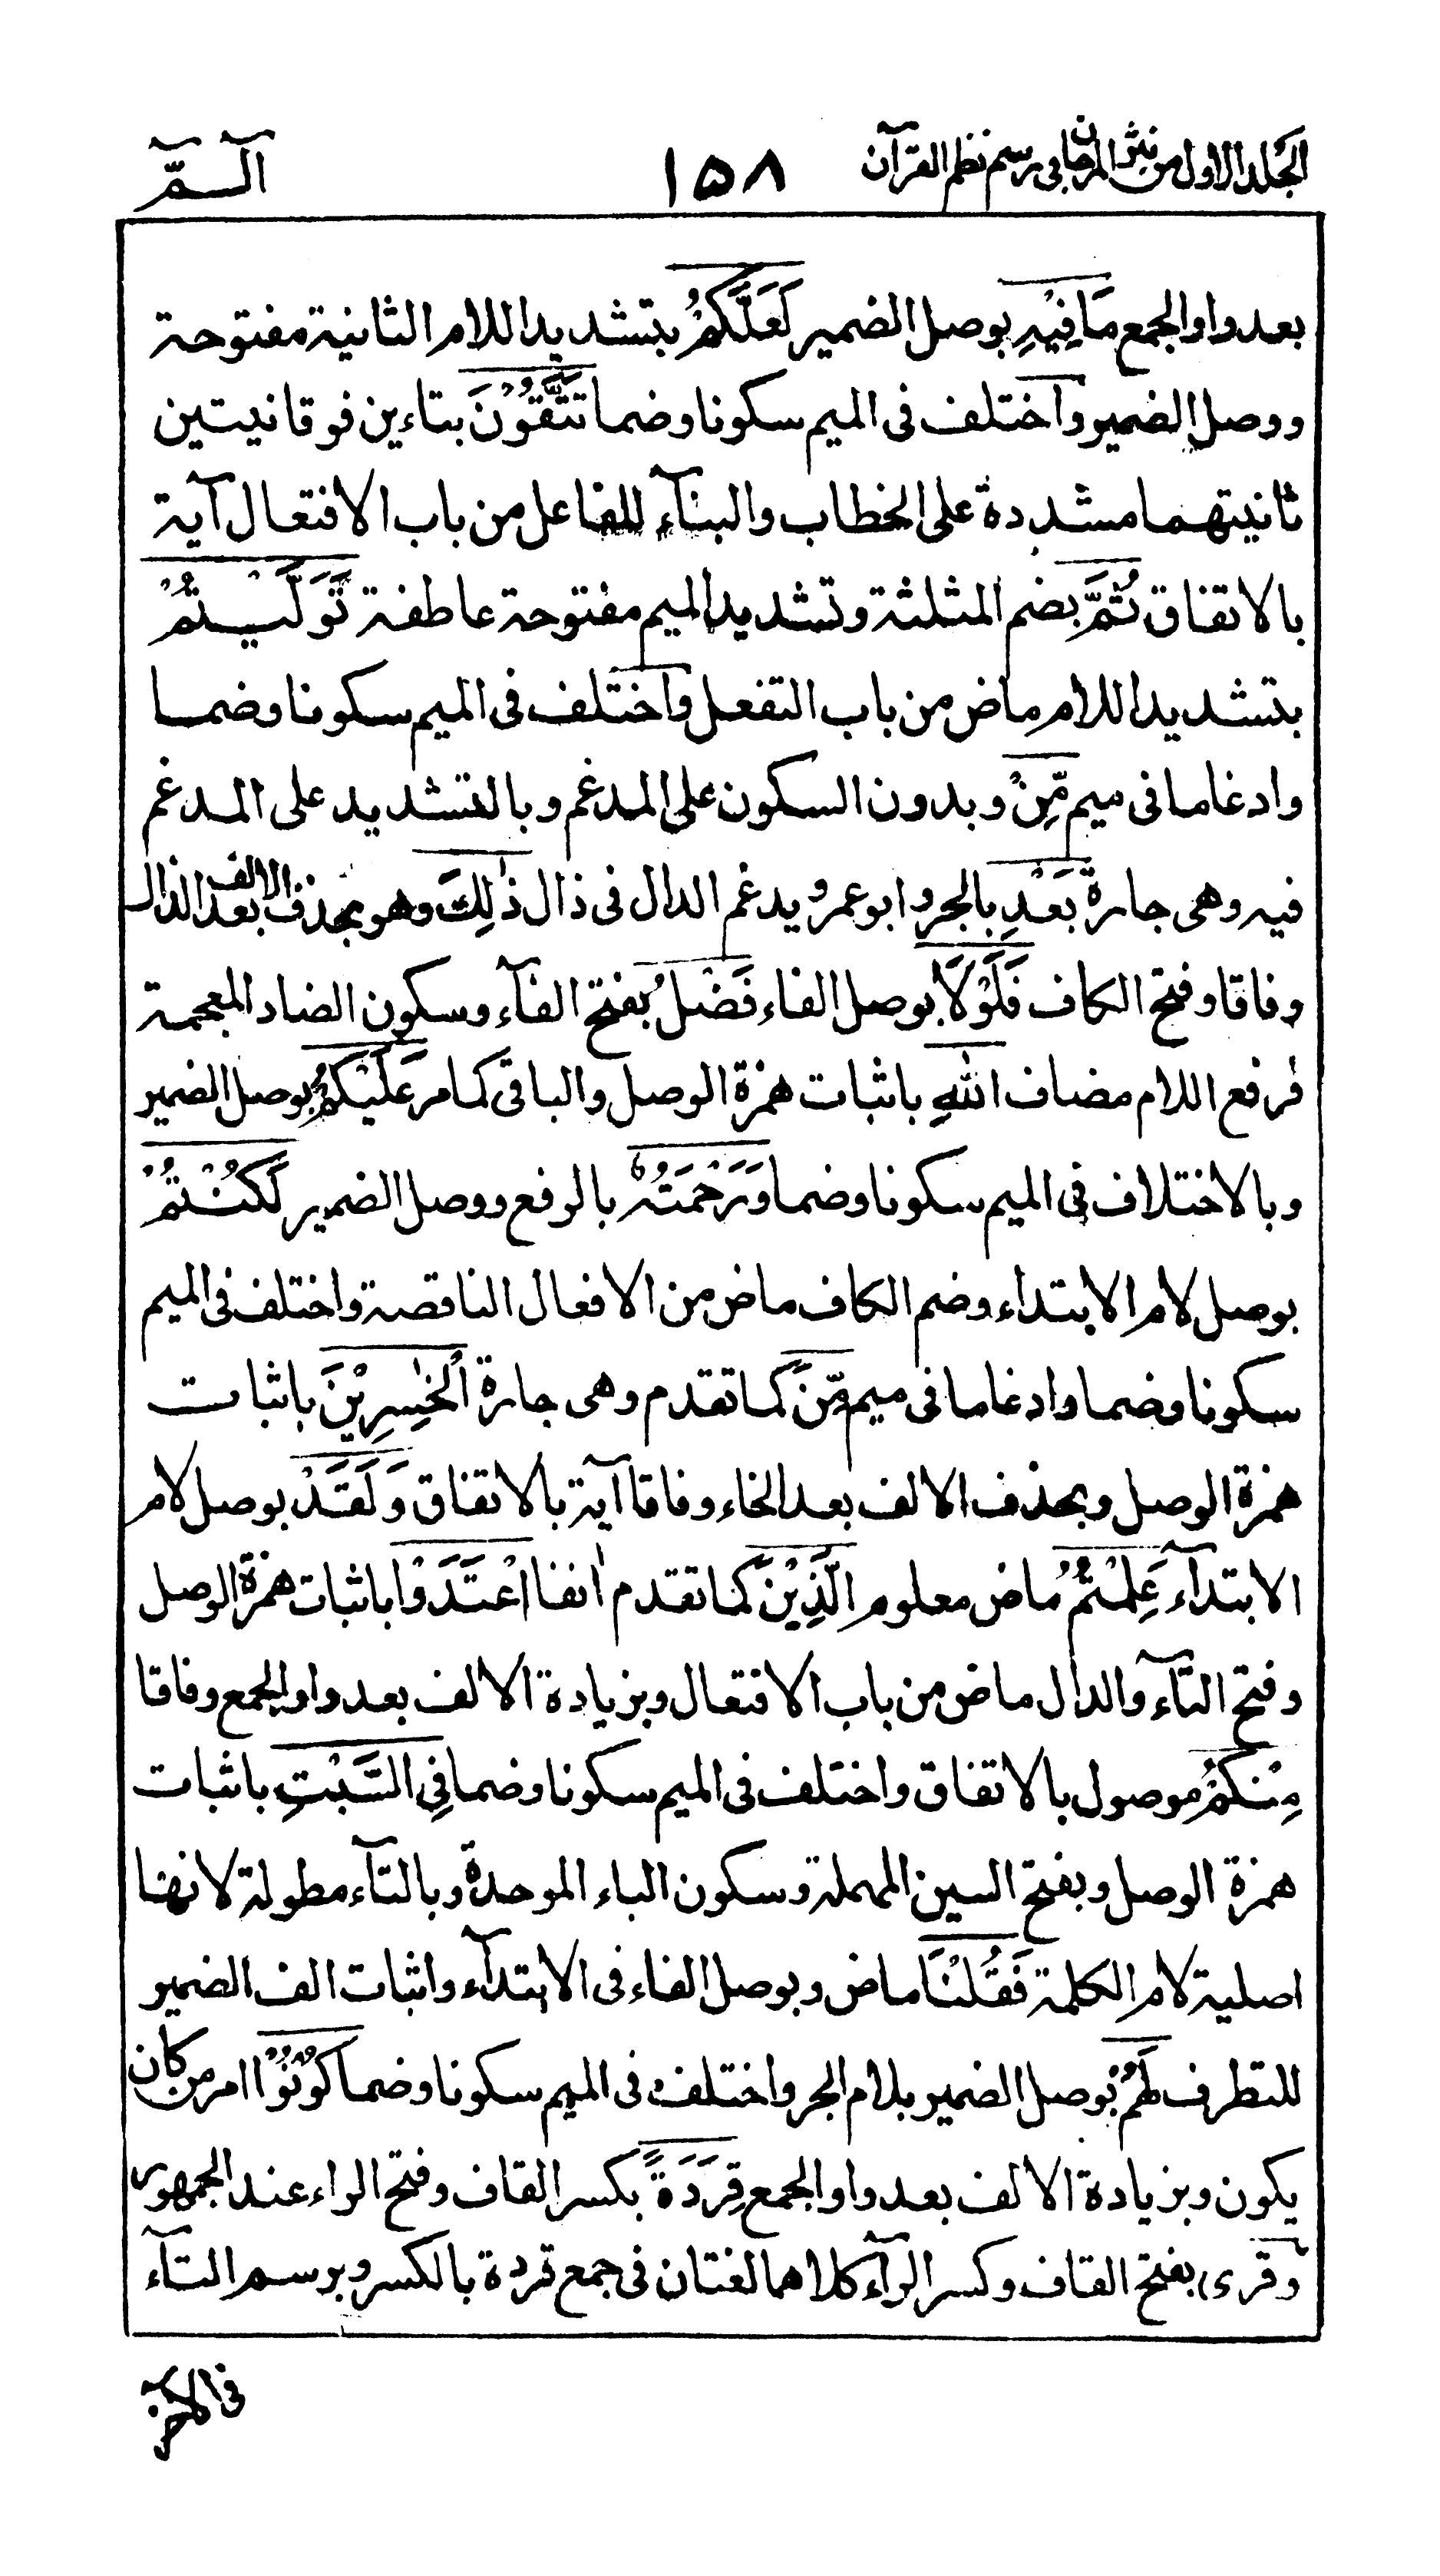 الجلد الاول من نثر المرجان فى رسم نظم القرآن ١٥٨ آلـمّٓ
بعد واو الجمع مَا فِيْهِ بوصل الضمير لَعَلَّكُمْ بتشديد اللام الثانية مفتوحة
ووصل الضمير واختلف فى الميم سكونا وضما تَتَّقُوْنَ بتاءين فوقانيتين
ثانيتهما مشددة على الخطاب والبنآء للفاعل من باب الافتعال آية
بالاتفاق ثُمَّ بضم المثلثة وتشديد الميم مفتوحة عاطفة تَوَلَّيْتُمْ
بتشديد اللام ماض من باب التفعل واختلف فى الميم سكونا وضما
وادغاما فى ميم مِّنْ وبدون السكون على المدغم وبالتشديد على المدغم
فيه وهى جارة بَعْدِ بالجر وابو عمرو يدغم الدال فى ذال ذٰلِكَ وهو بحذف الالف بعد الذال
وفاقا وفتح الكاف فَلَوْلَا بوصل الفاء فَضْلُ بفتح الفآء وسكون الضاد المعجمة
فرفع اللام مضاف اللّٰهِ باثبات همزة الوصل والباقى كما مر عَلَيْكُمْ بوصل الضمير
وبالاختلاف فى الميم سكونا وضما وَرَحْمَتُهٗ بالرفع ووصل الضمير لَكُنْتُمْ
بوصل لام الابتداء وضم الكاف ماض من الافعال الناقصة واختلف فى الميم
سكونا وضما وادغاما فى ميم مِّنَ كما تقدم وهى جارة الْخٰسِرِيْنَ باثبات
همزة الوصل وبحذف الالف بعد الخاء وفاقا آية بالاتفاق وَلَقَدْ بوصل لام
الابتدآء عَلِمْتُمُ ماض معلوم الَّذِيْنَ كما تقدم اٰنفا اعْتَدَوْا باثبات همزة الوصل
وفتح التآء والدال ماض من باب الافتعال وبزيادة الالف بعد واو الجمع وفاقا
مِنْكُمْ موصول بالاتفاق واختلف فى الميم سكونا وضما فِى السَّبْتِ باثبات
همزة الوصل وبفتح السين المهملة وسكون الباء الموحدة وبالتآء مطولة لانها
اصلية لام الكلمة فَقُلْنَا ماض وبوصل الفاء فى الابتدآء واثبات الف الضمير
للتطرف لَهُمْ بوصل الضمير بلام الجر واختلف فى الميم سكونا وضما كُوْنُوْا امر من كان
يكون وبزيادة الالف بعد واو الجمع قِرَدَةً بكسر القاف وفتح الراء عند الجمهور
وقرئ بفتح القاف وكسر الرآء كلاهما لغتان فى جمع قردة بالكسر وبرسم التآء